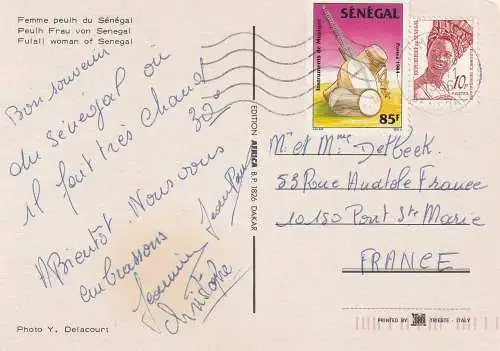 Femme peulh du Sénégal
Peulh Frau von Senegal
Fulall woman of Senegal
Bon souvenir
du Sénégal où
il fait très chaud
32°
A Bientôt. Nous vous
embrassons
Jean Paul
Jeannine
Christophe
Photo Y. Delacourt
EDITION AFRICA B.P. 1826 DAKAR
SÉNÉGAL
Instruments de Musique
Postes 1984
85F
REPUBLIQUE DU SENEGAL
10F
POSTES
Mr et Mme Delbeek
53 Rue Anatole France
10150 Pont Ste Marie
FRANCE
PRINTED BY
TRIESTE - ITALY